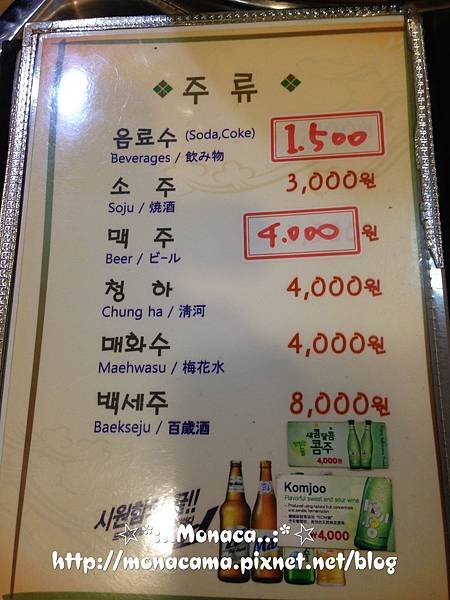 주 류
음료수 (Soda,Coke) 1.500
Beverages / 飲み物
소 주 3,000원
Soju / 燒酒
맥 주 4.000 원
Beer / ビール
청 하 4,000원
Chung ha / 淸河
매화수 4,000원
Maehwasu / 梅花水
백세주 8,000원
Baekseju / 百歲酒
새콤달콤
콤주
4,000원
Komjoo
Flavorful sweet and sour wine
₩4,000
☆*:..Monaca..:*☆
http://monacama.pixnet.net/blog